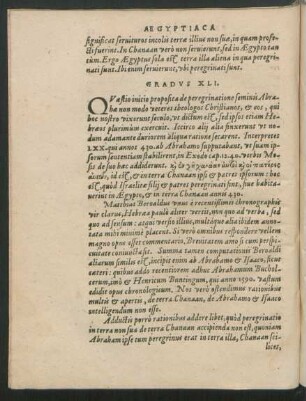 AEGYPTIACA
significat seruituros incolis terrae illius non suæ, in quam profe-
cti fuerint. In Chanaan verò non seruierunt, sed in Ægypto tan
tùm. Ergo Ægyptus sola est terra illa aliena in qua peregri-
nati sunt. Ibi enim seruierunt, vbi peregrinati sunt.
GRADVS XLI.
QVæstio initio proposita de peregrinatione seminis Abra-
hæ non modò veteres theologos Christianos, & eos, qui
hoc nostro vixerunt seculo, vt dictum est, sed ipsos etiam He-
bræos plurimùm exercuit. Itaque alij aliis finxerunt vt no-
dum adamante duriorem aliqua ratione secarent. Interpretes
LXX. qui annos 430. ab Abrahamo supputabant, vt suam i-
psorum sententiam stabilirent, in Exodo cap. 12. 40. verba Mo-
sis de suo hac addiderunt
id est, & in terra Chanaan ipsi & patres ipsorum: hoc
est, quòd Israëlitæ filij & patres peregrinati sint, siue habita-
uerint in Ægypto, & in terra Chanaan annis 430.
Matthias Beroaldus vnus è recentissimis chronographis
vir clarus, Hebræa paulò aliter vertit, non pura vt verba, sed
quo ad sensum: atqui versio illius, multáque alia ibidem anno-
tata mihi minimè placent. Si verò omnibus respondere vellem
magno opus esset commentario. Breuitatem amo si cum perspi-
cuitate coniuncta sit. Summa tamen computationis Beroaldi
aliarum similis est, incipit enim ab Abrahamo & Isaaco, sicut
cæteri: quibus addo recentiorem adhuc Abrahamum Buchol-
cerum, imò & Henricum Buntingum, qui anno 1590. vastum
edidit opus chronologicum. Nos verò ostendimus rationibus
multis & apertis, de terra Chanaan, de Abrahamo & Isaaco
intelligendum non esse.
Adductis porrò rationibus addere libet, quòd peregrinatio
in terra non sua de terra Chanaan accipienda non est, quoniam
Abraham ipse tum peregrinus erat in terra illa, Chanaan sci-
licet,